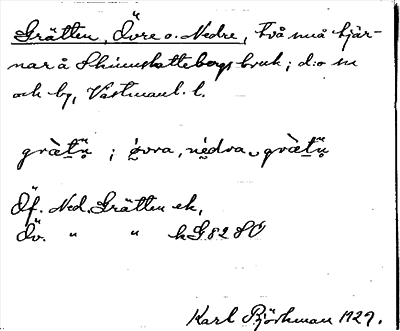 Grätten, Övre o. Nedre, två små tjär-
nar å Skinnskattebergs bruk; d:o sn
och by, Västmanl. l.
grätṳ ; ǫ̈vra, nèdra ᴗ grätṳ
Öf. Ned. Grätten ek,
Öv. " " hG 82 SÖ
Karl Björkman 1929.